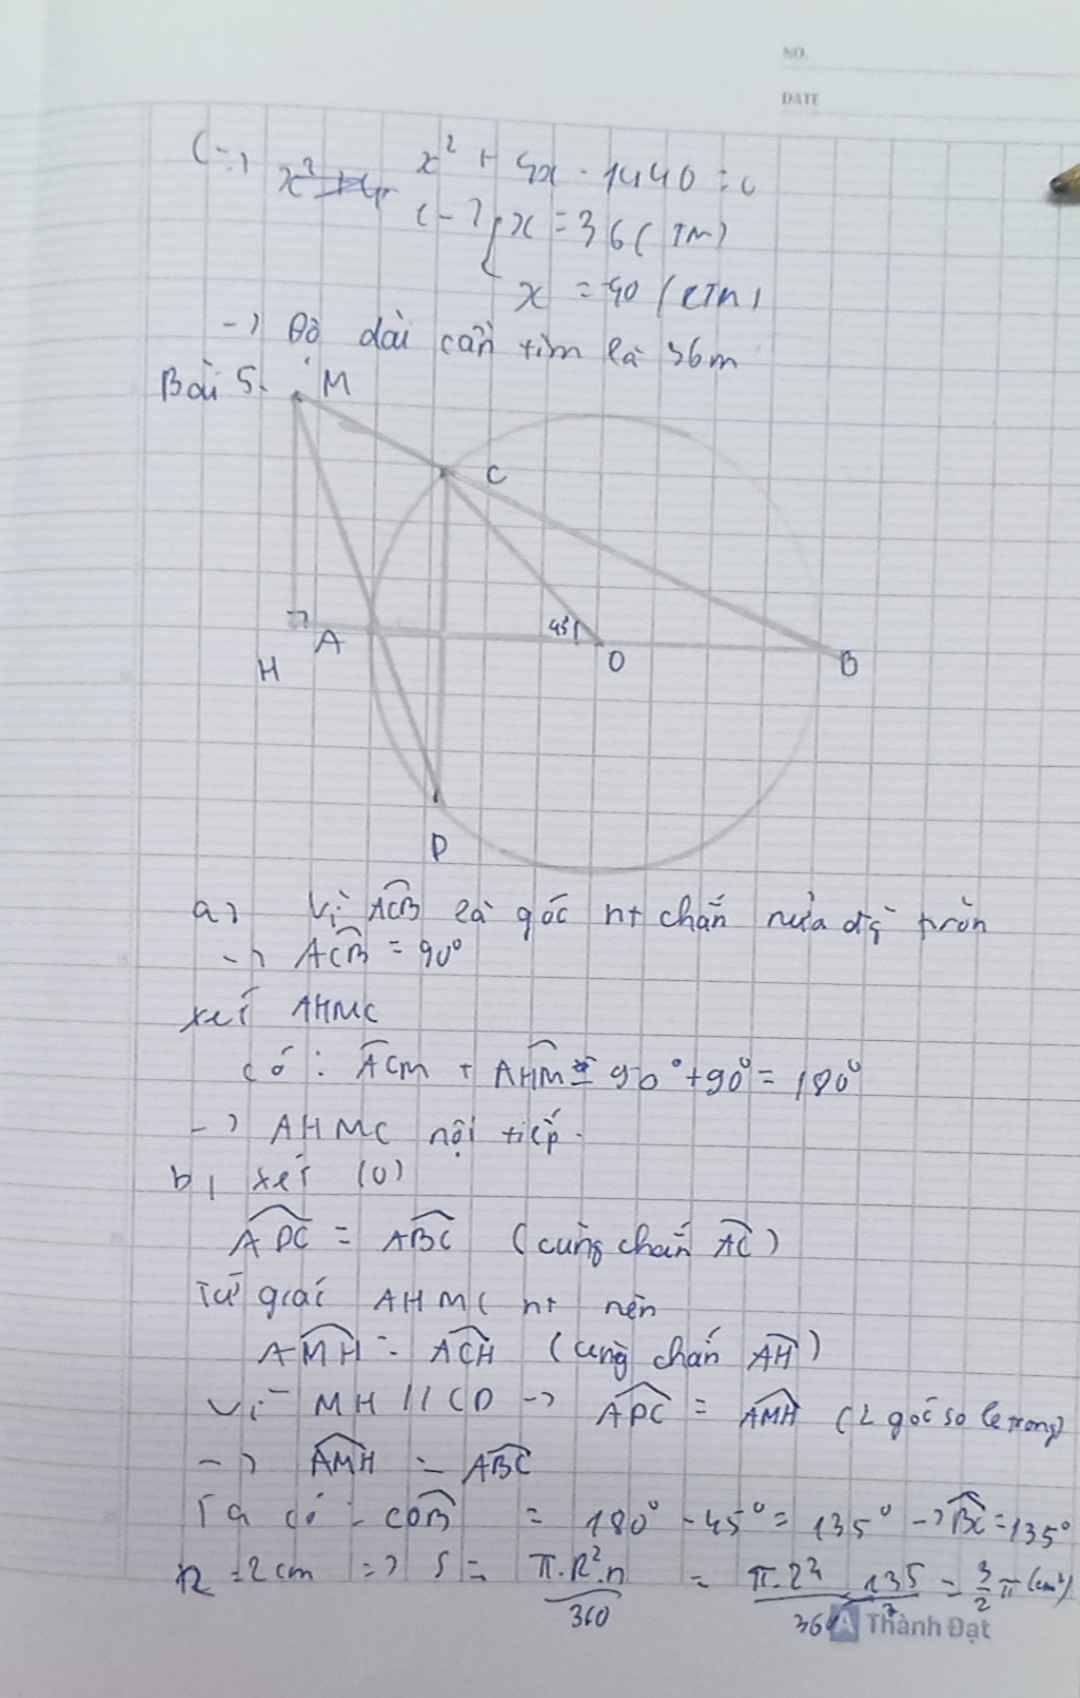 NO.
DATE
x² + 4x - 1440 = 0
x = 36 (TM)
x = 40 (KTM)
-) Độ dài cần tìm là 36m
Bài 5.
M
C
45°
A
O
B
H
D
a) Vì ACB là góc nt chắn nửa đg tròn
-) ACB = 90°
xét AHMC
có : ACM + AHM = 90° + 90° = 180°
-) AHMC nội tiếp.
b, xét (O)
ADC = ABC (cùng chắn AC)
Tứ giác AHMC nt nên
AMH = ACH (cùng chắn AH)
Vì MH // CD -) ADC = AMH (2 góc so le trong)
-) AMH = ABC
Ta có : COB = 180° - 45° = 135° -) BC = 135°
R = 2cm =) S = π.R².n / 360 = π.2².135 / 360 = 3/2 π (cm²)
Thành Đạt